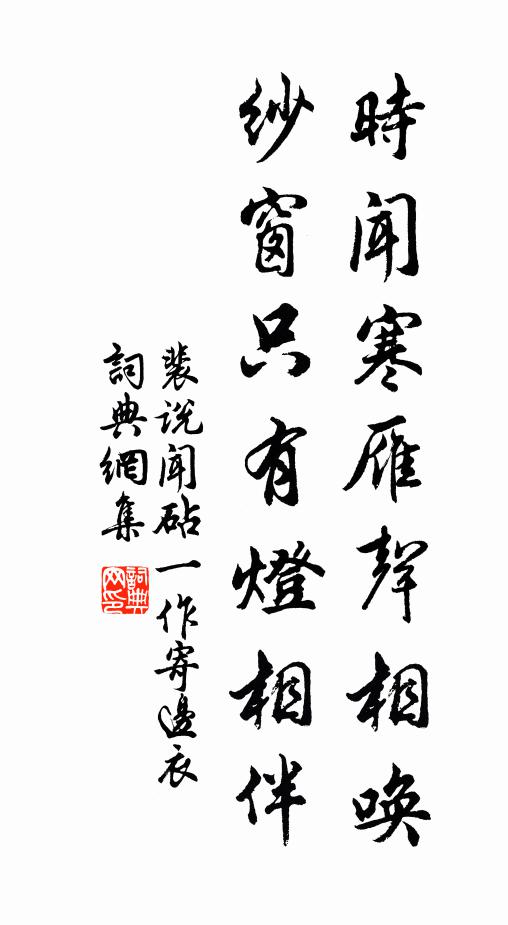 時聞寒雁聲相喚
紗窗只有燈相伴
裴說聞砧一作寄邊衣
詞典網集
詞典网印